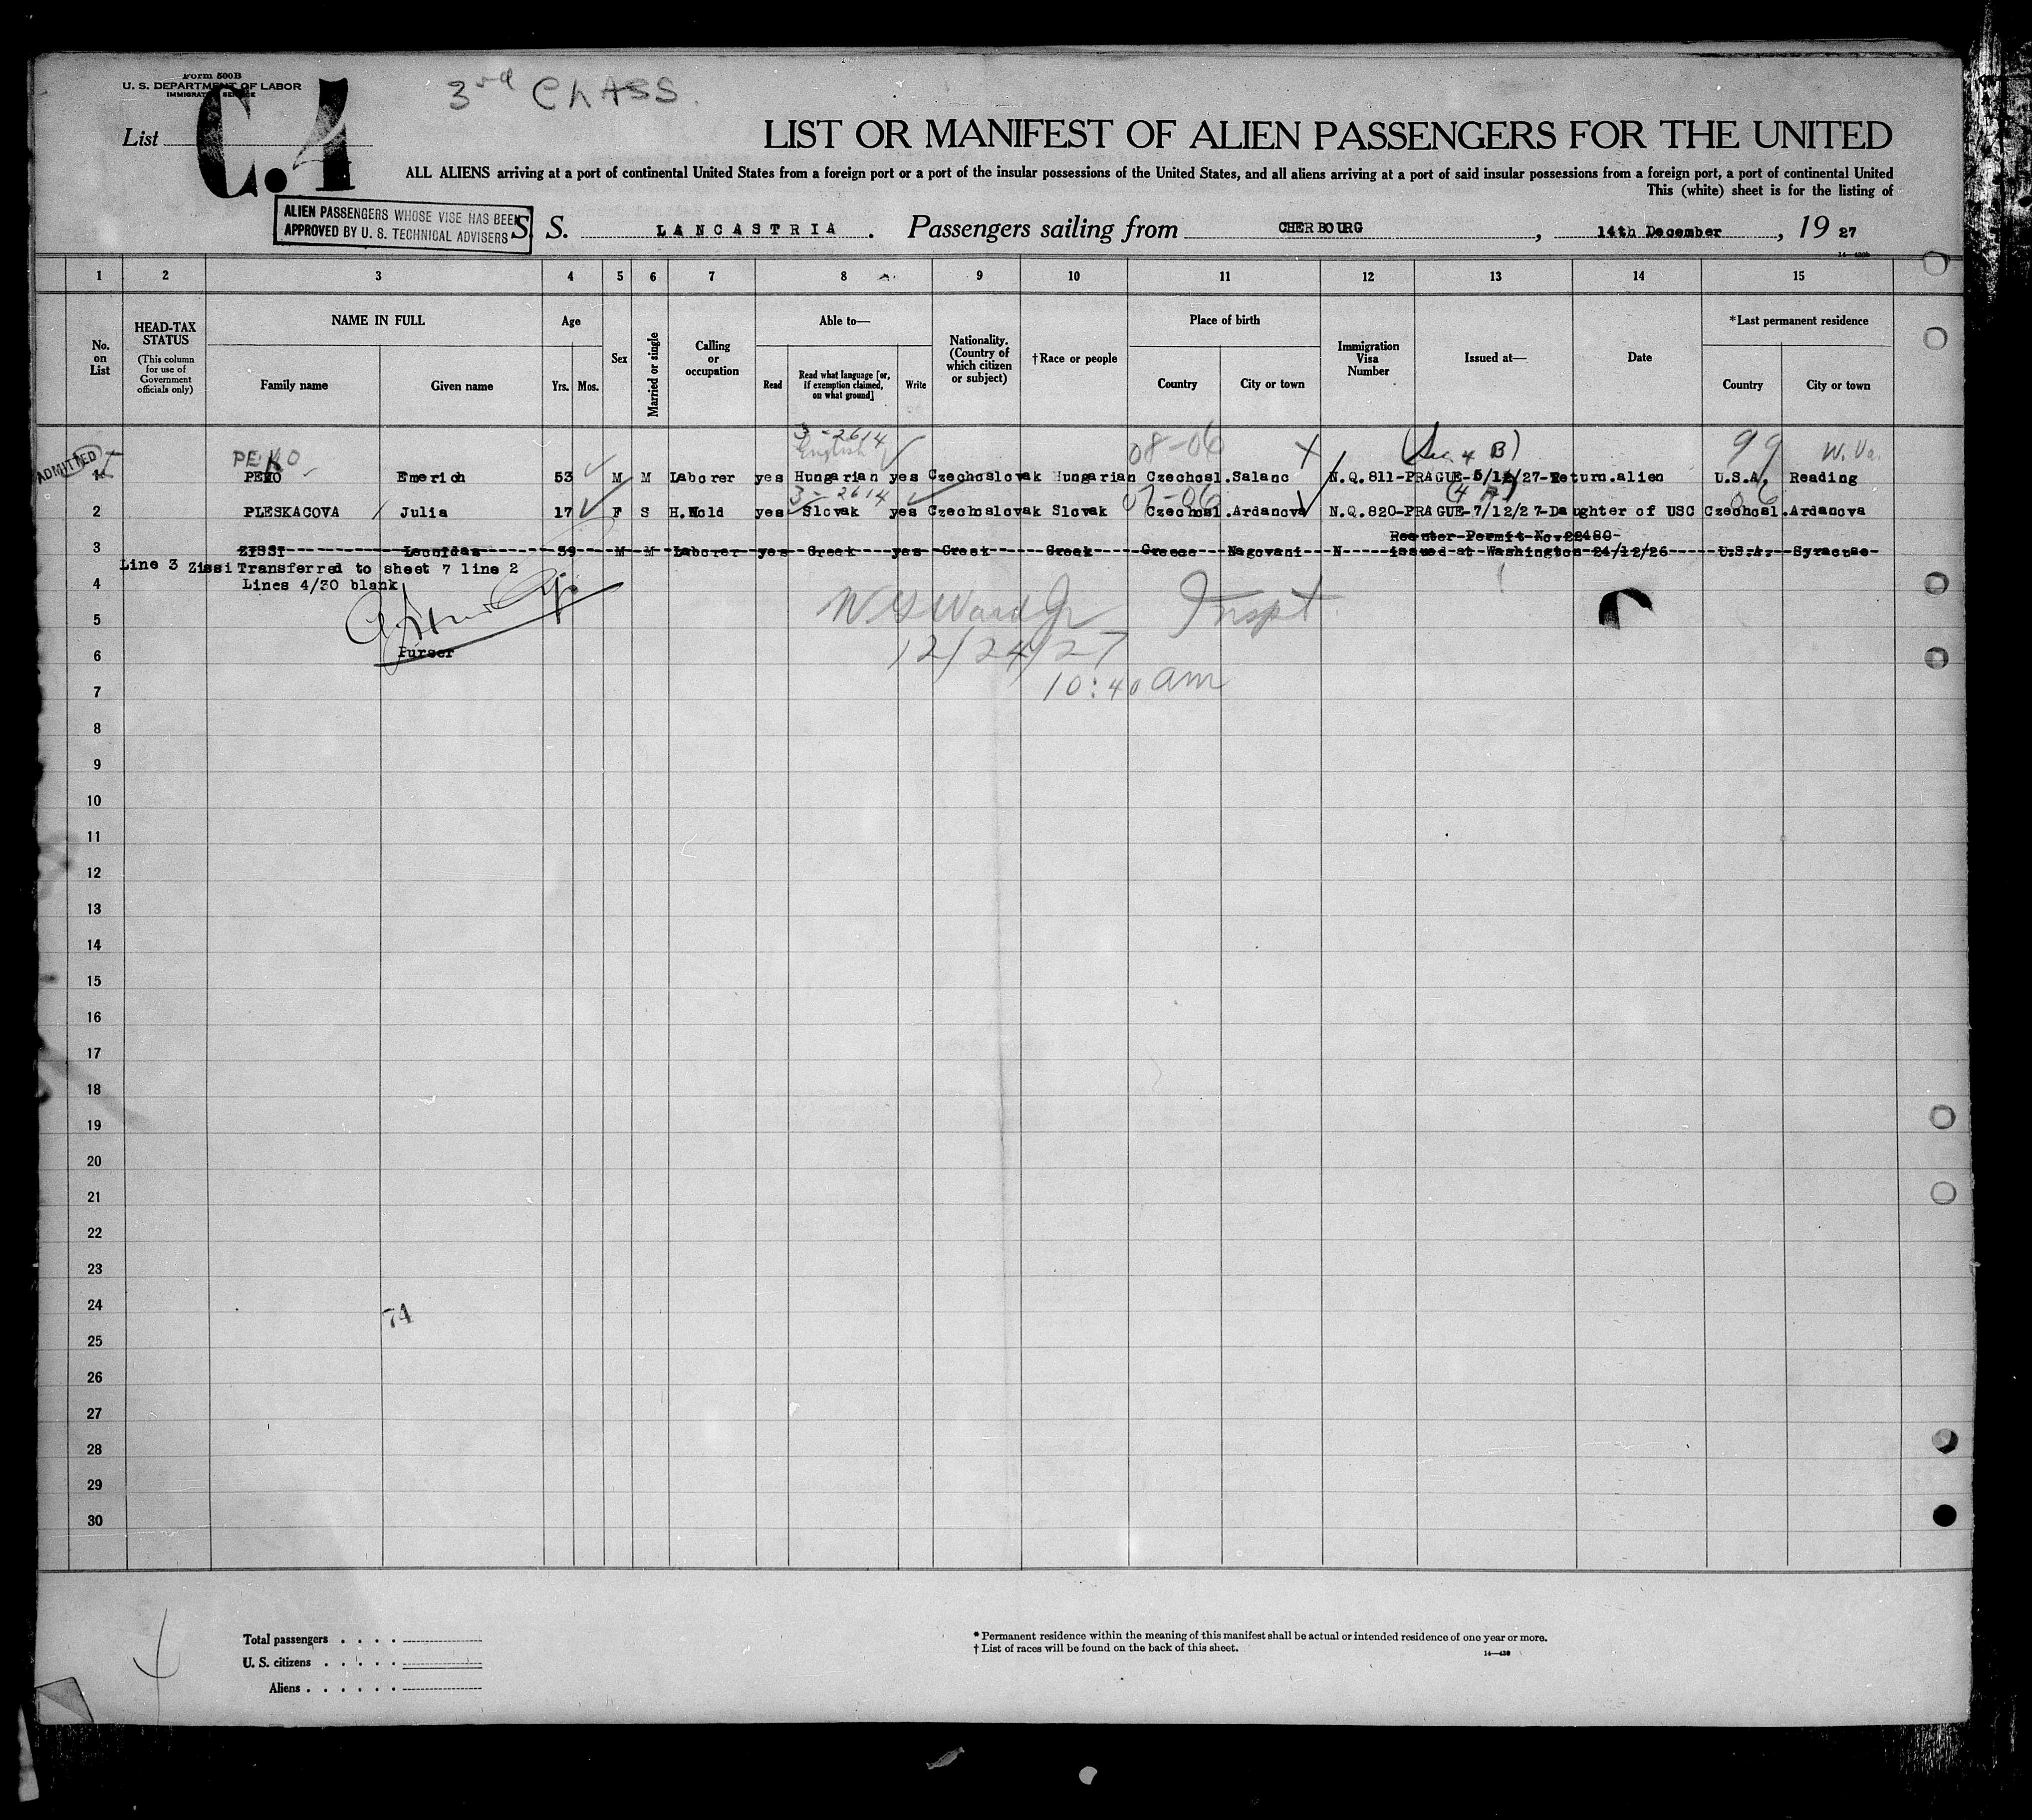 Form 500B
U. S. DEPARTMENT OF LABOR
IMMIGRATION SERVICE
3rd CLASS.
List C.4
LIST OR MANIFEST OF ALIEN PASSENGERS FOR THE UNITED
ALL ALIENS arriving at a port of continental United States from a foreign port or a port of the insular possessions of the United States, and all aliens arriving at a port of said insular possessions from a foreign port, a port of continental United
This (white) sheet is for the listing of
ALIEN PASSENGERS WHOSE VISE HAS BEEN
APPROVED BY U. S. TECHNICAL ADVISERS
S. S. LANCASTRIA. Passengers sailing from CHERBOURG, 14th December, 19 27
1 2 3 4 5 6 7 8 9 10 11 12 13 14 15
No. on List
HEAD-TAX STATUS
(This column for use of Government officials only)
NAME IN FULL
Family name Given name
Age
Yrs. Mos.
Sex
Married or single
Calling or occupation
Able to—
Read
Read what language [or, if exemption claimed, on what ground]
Write
Nationality. (Country of which citizen or subject)
†Race or people
Place of birth
Country City or town
Immigration Visa Number
Issued at—
Date
*Last permanent residence
Country City or town
3-2614
English
08-06
(Sec. 4 B)
99 W. Va.
ADMITTED
PEKO
1 Emerich 53 M M Laborer yes Hungarian yes Czechoslovak Hungarian Czechosl. Salanc N.Q.811-PRAGUE-5/12/27-Return.alien U.S.A. Reading
3-2614
07-06
(4 A)
06
2 PLESKACOVA Julia 17 F S H.Hold yes Slovak yes Czechoslovak Slovak Czechosl. Ardanova N.Q.820-PRAGUE-7/12/27-Daughter of USC Czechosl. Ardanova
Reenter-Permit-No.22480-
3 ZISSI Leonidas 39 M M Laborer yes Greek yes Greek Greek Greece Nagovani N issued at Washington 24/12/26 U.S.A. Syracuse
Line 3 Zissi Transferred to sheet 7 line 2
4 Lines 4/30 blank
5
W G Ward Jr Inspt
12/24/27
10:40 am
6 Purser
7
8
9
10
11
12
13
14
15
16
17
18
19
20
21
22
23
24
74
25
26
27
28
29
30
Total passengers . . . .
U. S. citizens . . . . .
Aliens . . . . . .
* Permanent residence within the meaning of this manifest shall be actual or intended residence of one year or more.
† List of races will be found on the back of this sheet.